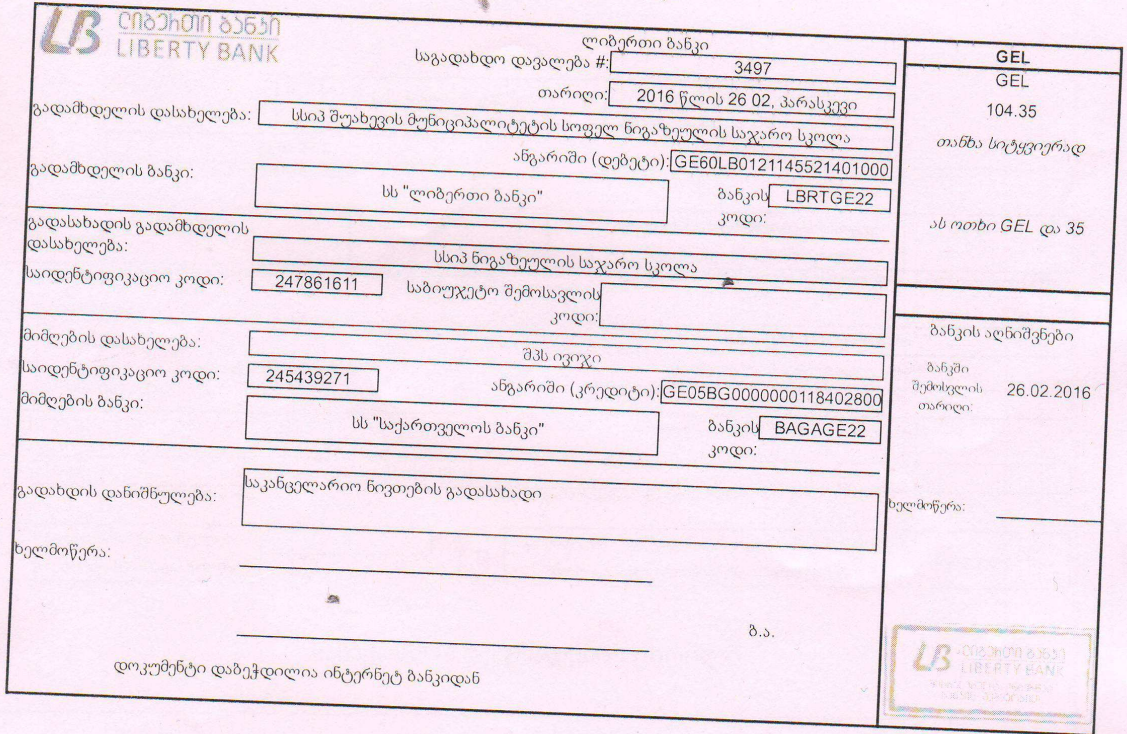 ლიბერთი ბანკი
LIBERTY BANK
ლიბერთი ბანკი
საგადახდო დავალება #: 3497
თარიღი: 2016 წლის 26 02, პარასკევი
გადამხდელის დასახელება: სსიპ შუახევის მუნიციპალიტეტის სოფელ ნიგაზეულის საჯარო სკოლა
ანგარიში (დებეტი): GE60LB0121145521401000
გადამხდელის ბანკი: სს "ლიბერთი ბანკი" ბანკის კოდი: LBRTGE22
გადასახადის გადამხდელის
დასახელება: სსიპ ნიგაზეულის საჯარო სკოლა
საიდენტიფიკაციო კოდი: 247861611 საბიუჯეტო შემოსავლის
კოდი:
მიმღების დასახელება: შპს ივიჯი
საიდენტიფიკაციო კოდი: 245439271 ანგარიში (კრედიტი): GE05BG0000000118402800
მიმღების ბანკი: სს "საქართველოს ბანკი" ბანკის კოდი: BAGAGE22
გადახდის დანიშნულება: საკანცელარიო ნივთების გადასახადი
ხელმოწერა:
ბ.ა.
დოკუმენტი დაბეჭდილია ინტერნეტ ბანკიდან
GEL
GEL
104.35
თანხა სიტყვიერად
ას ოთხი GEL და 35
ბანკის აღნიშვნები
ბანკში
შემოსვლის 26.02.2016
თარიღი:
ხელმოწერა:
ლიბერთი ბანკი
LIBERTY BANK